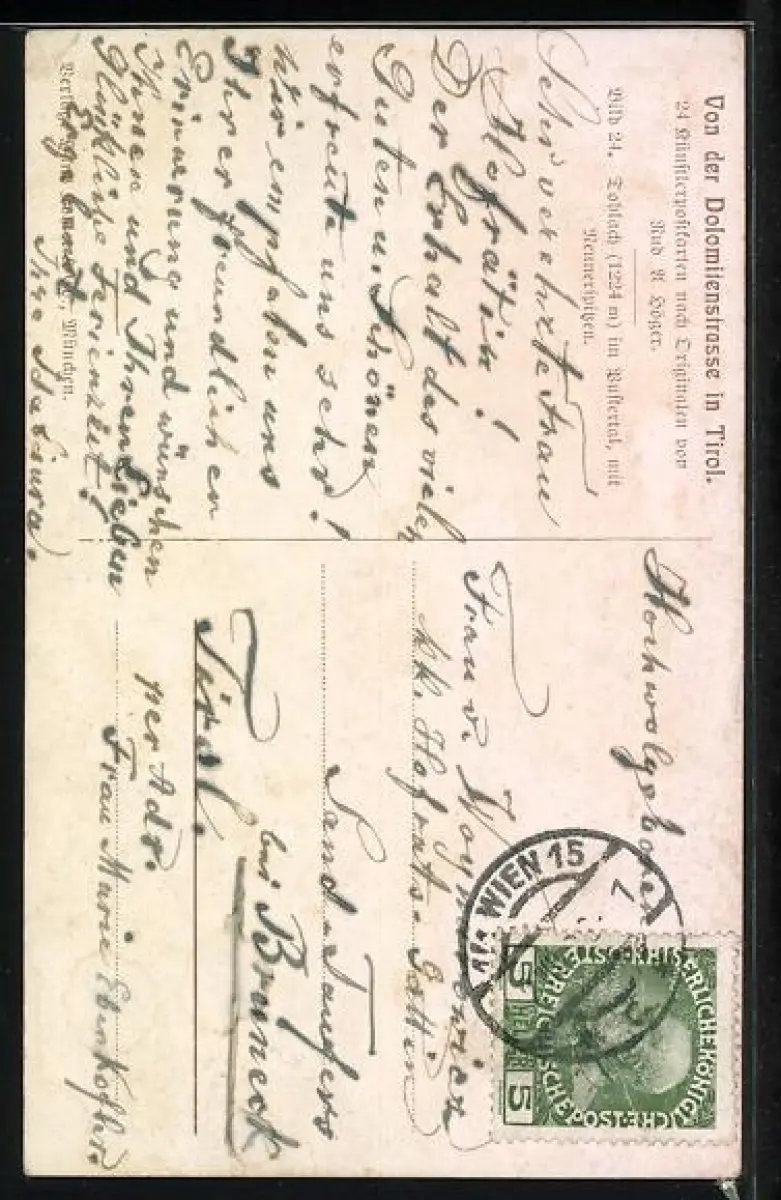 Von der Dolomitenstrasse in Tirol.
24 Künstlerpostkarten nach Originalen von
Rud A Höger.
Bild 24. Toblach (1224 m) im Pustertal, mit
Neunerspitzen.
Sehr verehrte Frau
Hofrätin!
Der Erhalt des vielen
Guten u. Schönen
erfreute uns sehr!
Wir empfalen uns
Ihrer freundlichen
Erinnerung und wünschen
Ihnen und Ihren Lieben
glückliche Ferienzeit!
Ihre
München.
Hochwolgeboren
Frau v.
k.k. Hofrats-Gattin
Sand-Taufers
bei Bruneck
Tirol.
per Adr.
Frau Marie
WIEN 15
KAISERLICHKÖNIGLICHE
ÖSTERREICHISCHE POST
5 HELLER 5